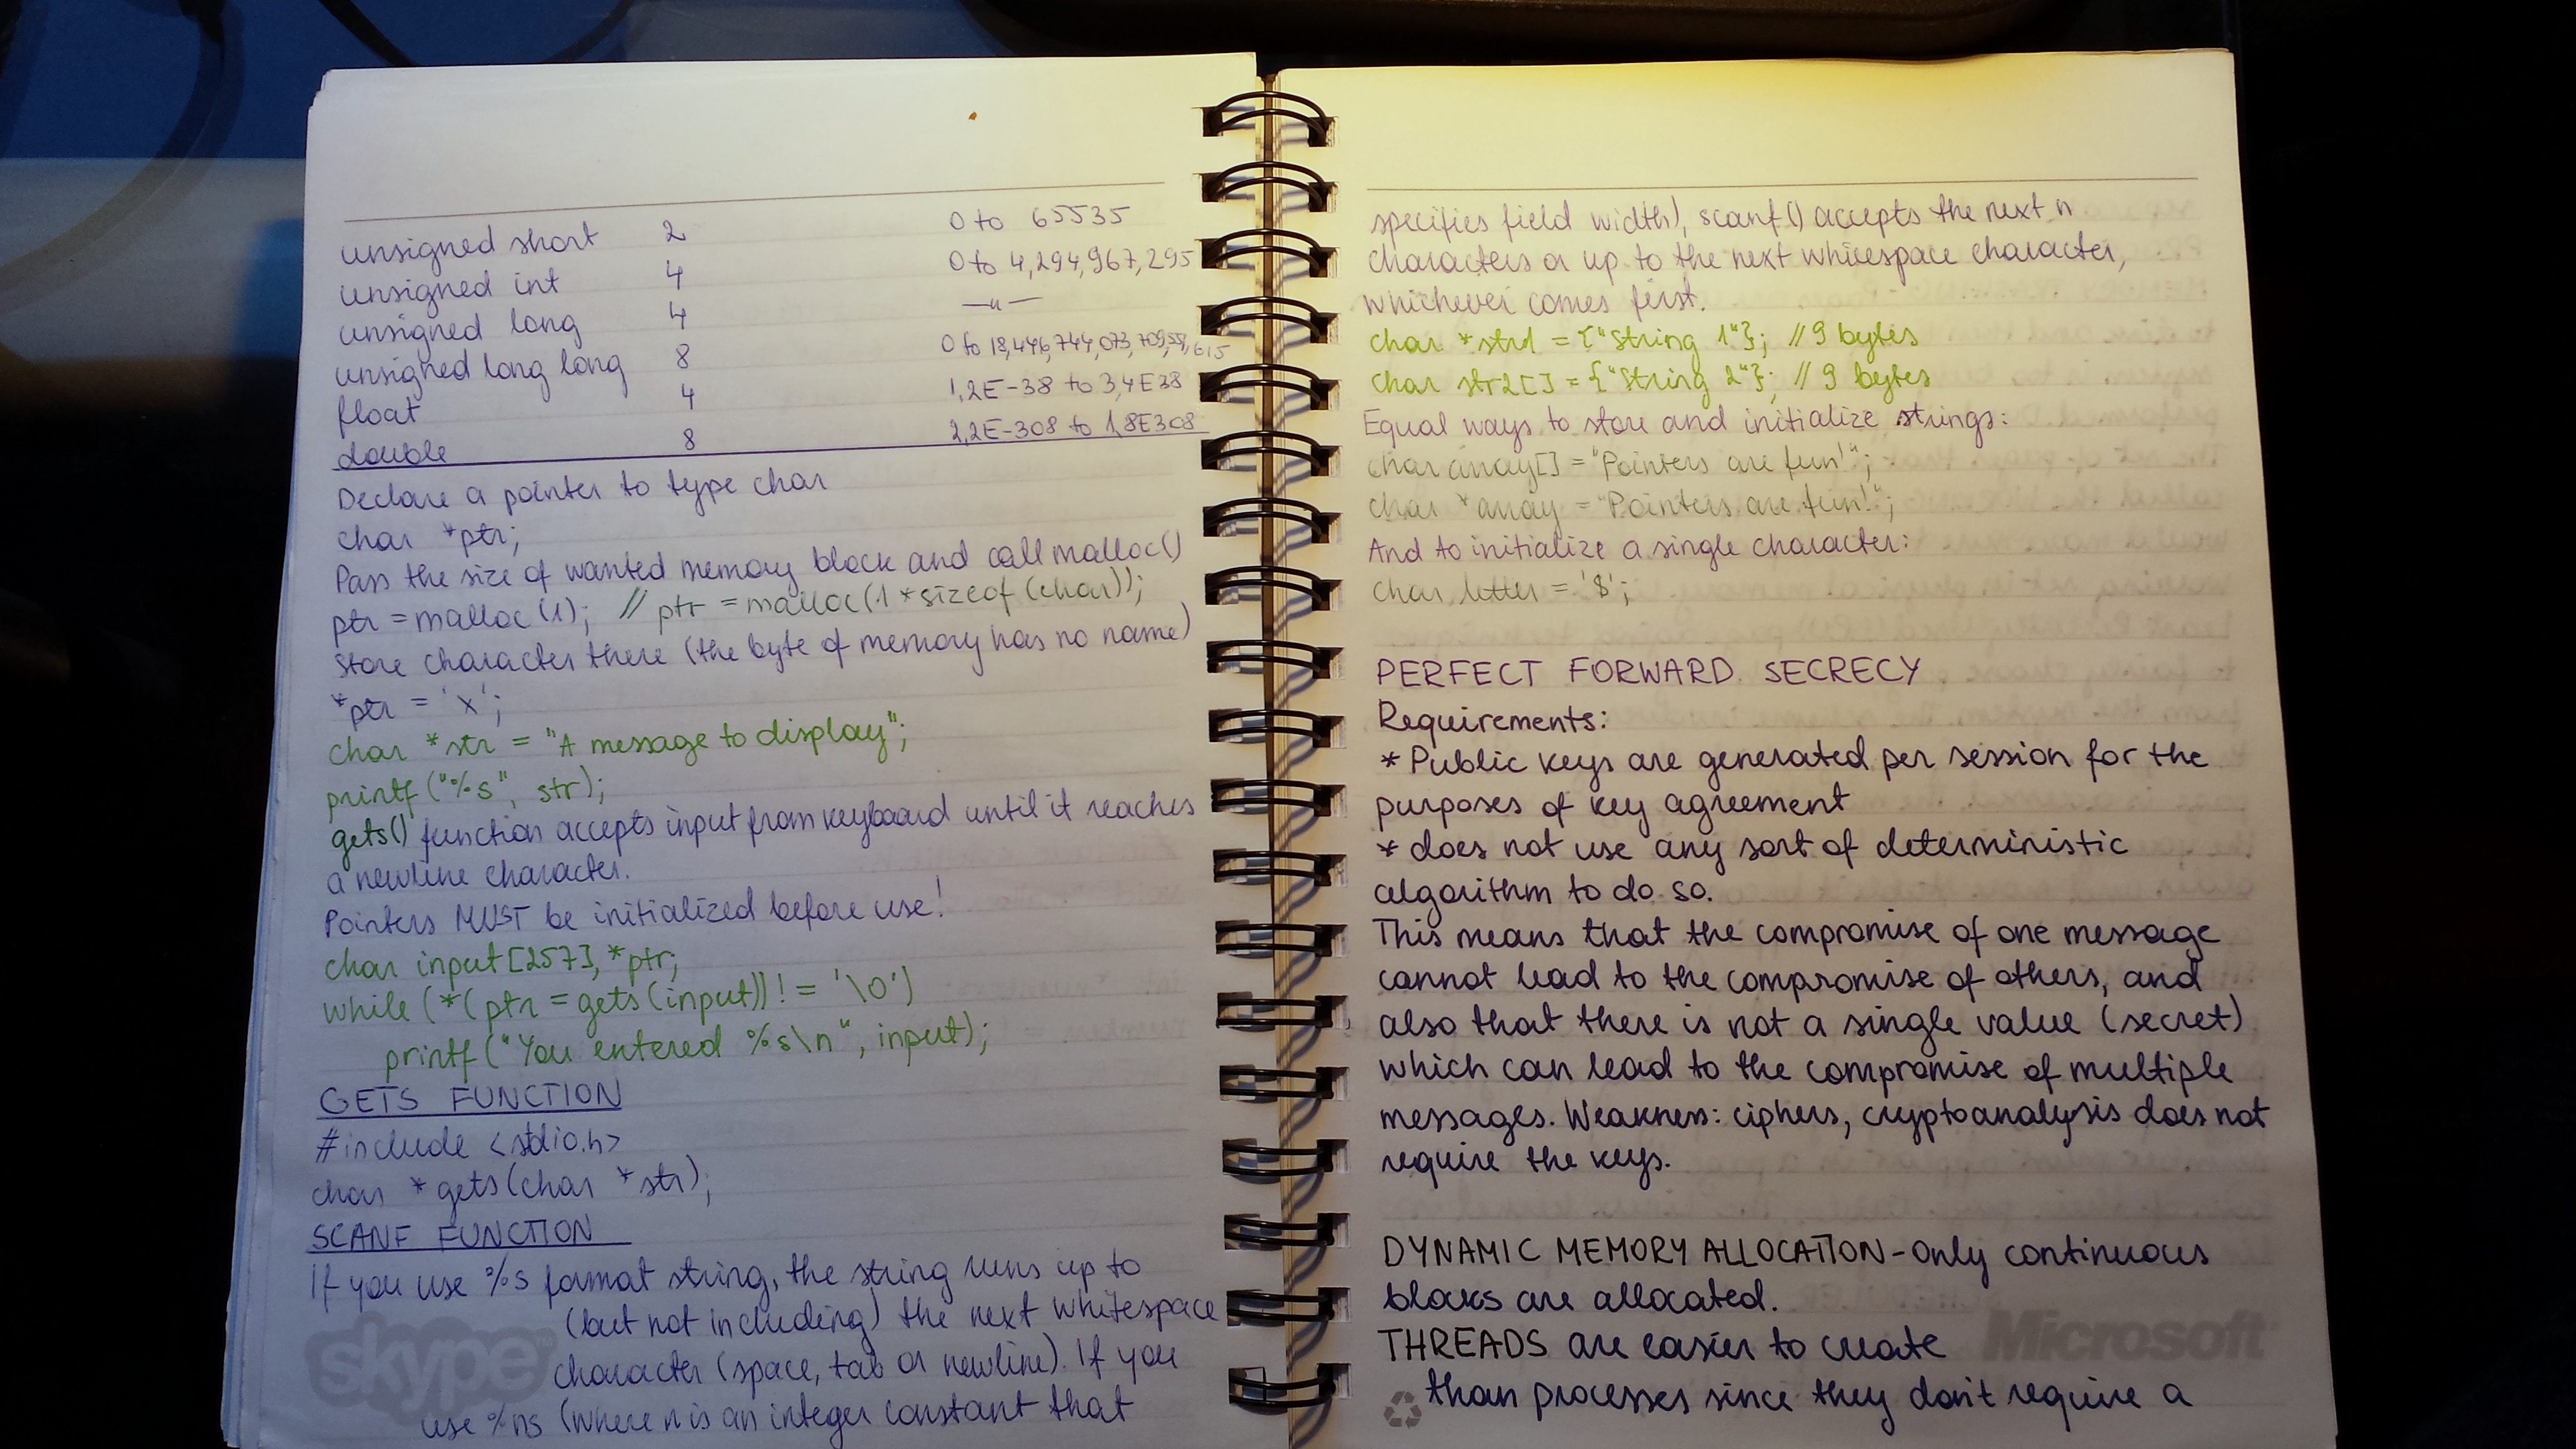 unsigned short 2 0 to 65535
unsigned int 4 0 to 4,294,967,295
unsigned long 4 —"—
unsigned long long 8 0 to 18,446,744,073,709,551,615
float 4 1,2E-38 to 3,4E38
double 8 2,2E-308 to 1,8E308
Declare a pointer to type char
char *ptr;
Pass the size of wanted memory block and call malloc()
ptr = malloc(1); // ptr = malloc(1*sizeof(char));
Store character there (the byte of memory has no name)
*ptr = 'x';
char *str = "A message to display";
printf("%s", str);
gets() function accepts input from keyboard until it reaches
a newline character.
Pointers MUST be initialized before use!
char input[257], *ptr;
while (*(ptr = gets(input)) != '\0')
printf("You entered %s\n", input);
GETS FUNCTION
#include <stdio.h>
char *gets(char *str);
SCANF FUNCTION
If you use %s format string, the string runs up to
(but not including) the next whitespace
character (space, tab or newline). If you
use %ns (where n is an integer constant that
skype™
specifies field width), scanf() accepts the next n
characters or up to the next whitespace character,
whichever comes first.
char *str1 = {"String 1"}; // 9 bytes
char str2[] = {"String 2"}; // 9 bytes
Equal ways to store and initialize strings:
char array[] = "Pointers are fun!";
char *array = "Pointers are fun!";
And to initialize a single character:
char letter = '$';
PERFECT FORWARD SECRECY
Requirements:
* Public keys are generated per session for the
purposes of key agreement
* does not use any sort of deterministic
algorithm to do so.
This means that the compromise of one message
cannot lead to the compromise of others, and
also that there is not a single value (secret)
which can lead to the compromise of multiple
messages. Weakness: ciphers, cryptoanalysis does not
require the keys.
DYNAMIC MEMORY ALLOCATION - only continuous
blocks are allocated.
THREADS are easier to create
than processes since they don't require a
Microsoft